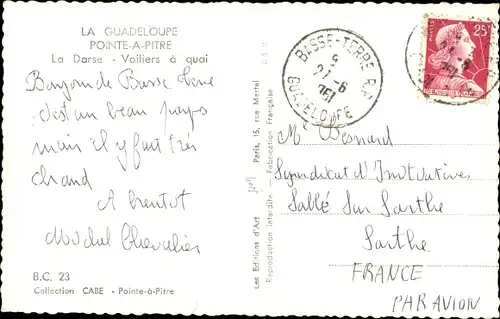 LA GUADELOUPE
POINTE-A-PITRE
La Darse - Voiliers à quai
Bonjour de Basse Terre
c'est un beau pays
mais il y fait très
chaud
A bientot
Michel Chevalier
B.C. 23
Collection CABE - Pointe-à-Pitre
Les Editions d'Art Paris, 15, rue Martel
Reproduction interdite - Fabrication Française
BASSE-TERRE
GUADELOUPE
25F
M Besnard
Syndicat d'Initiatives
Sablé Sur Sarthe
Sarthe
FRANCE
PAR AVION